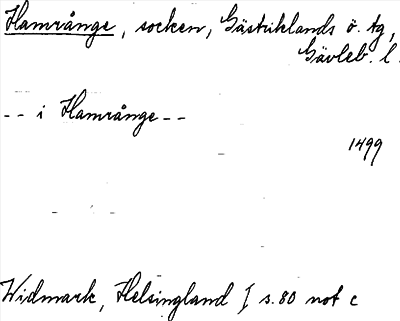 Hamrånge, socken, Gästriklands ö. tg,
Gävleb. l.
-- i Hamrånge --
1499
Widmark, Helsingland I s. 80 not c